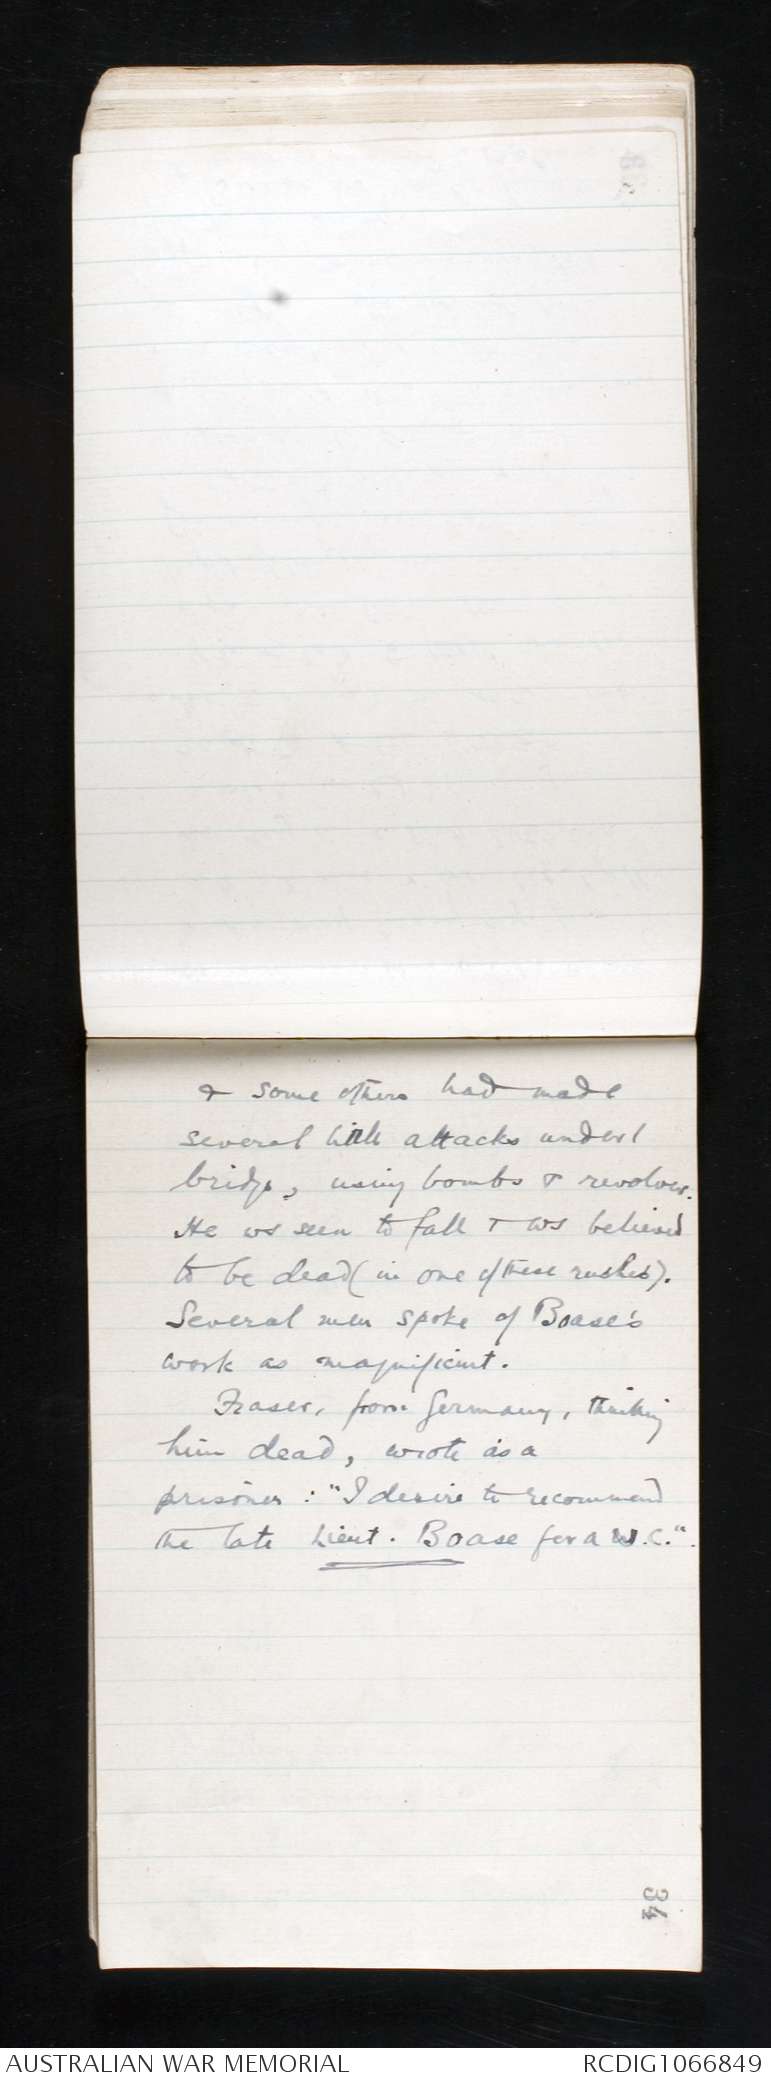 & some others had made
several little attacks under l
bridge, using bombs & revolver.
He ws seen to fall & ws believed
to be dead (in one of these rushes).
Several men spoke of Boase's
work as magnificent.
Fraser, from Germany, thinking
him dead, wrote as a
prisoner: "I desire to recommend
the late Lieut. Boase for a V.C.".
34
AUSTRALIAN WAR MEMORIAL
RCDIG1066849